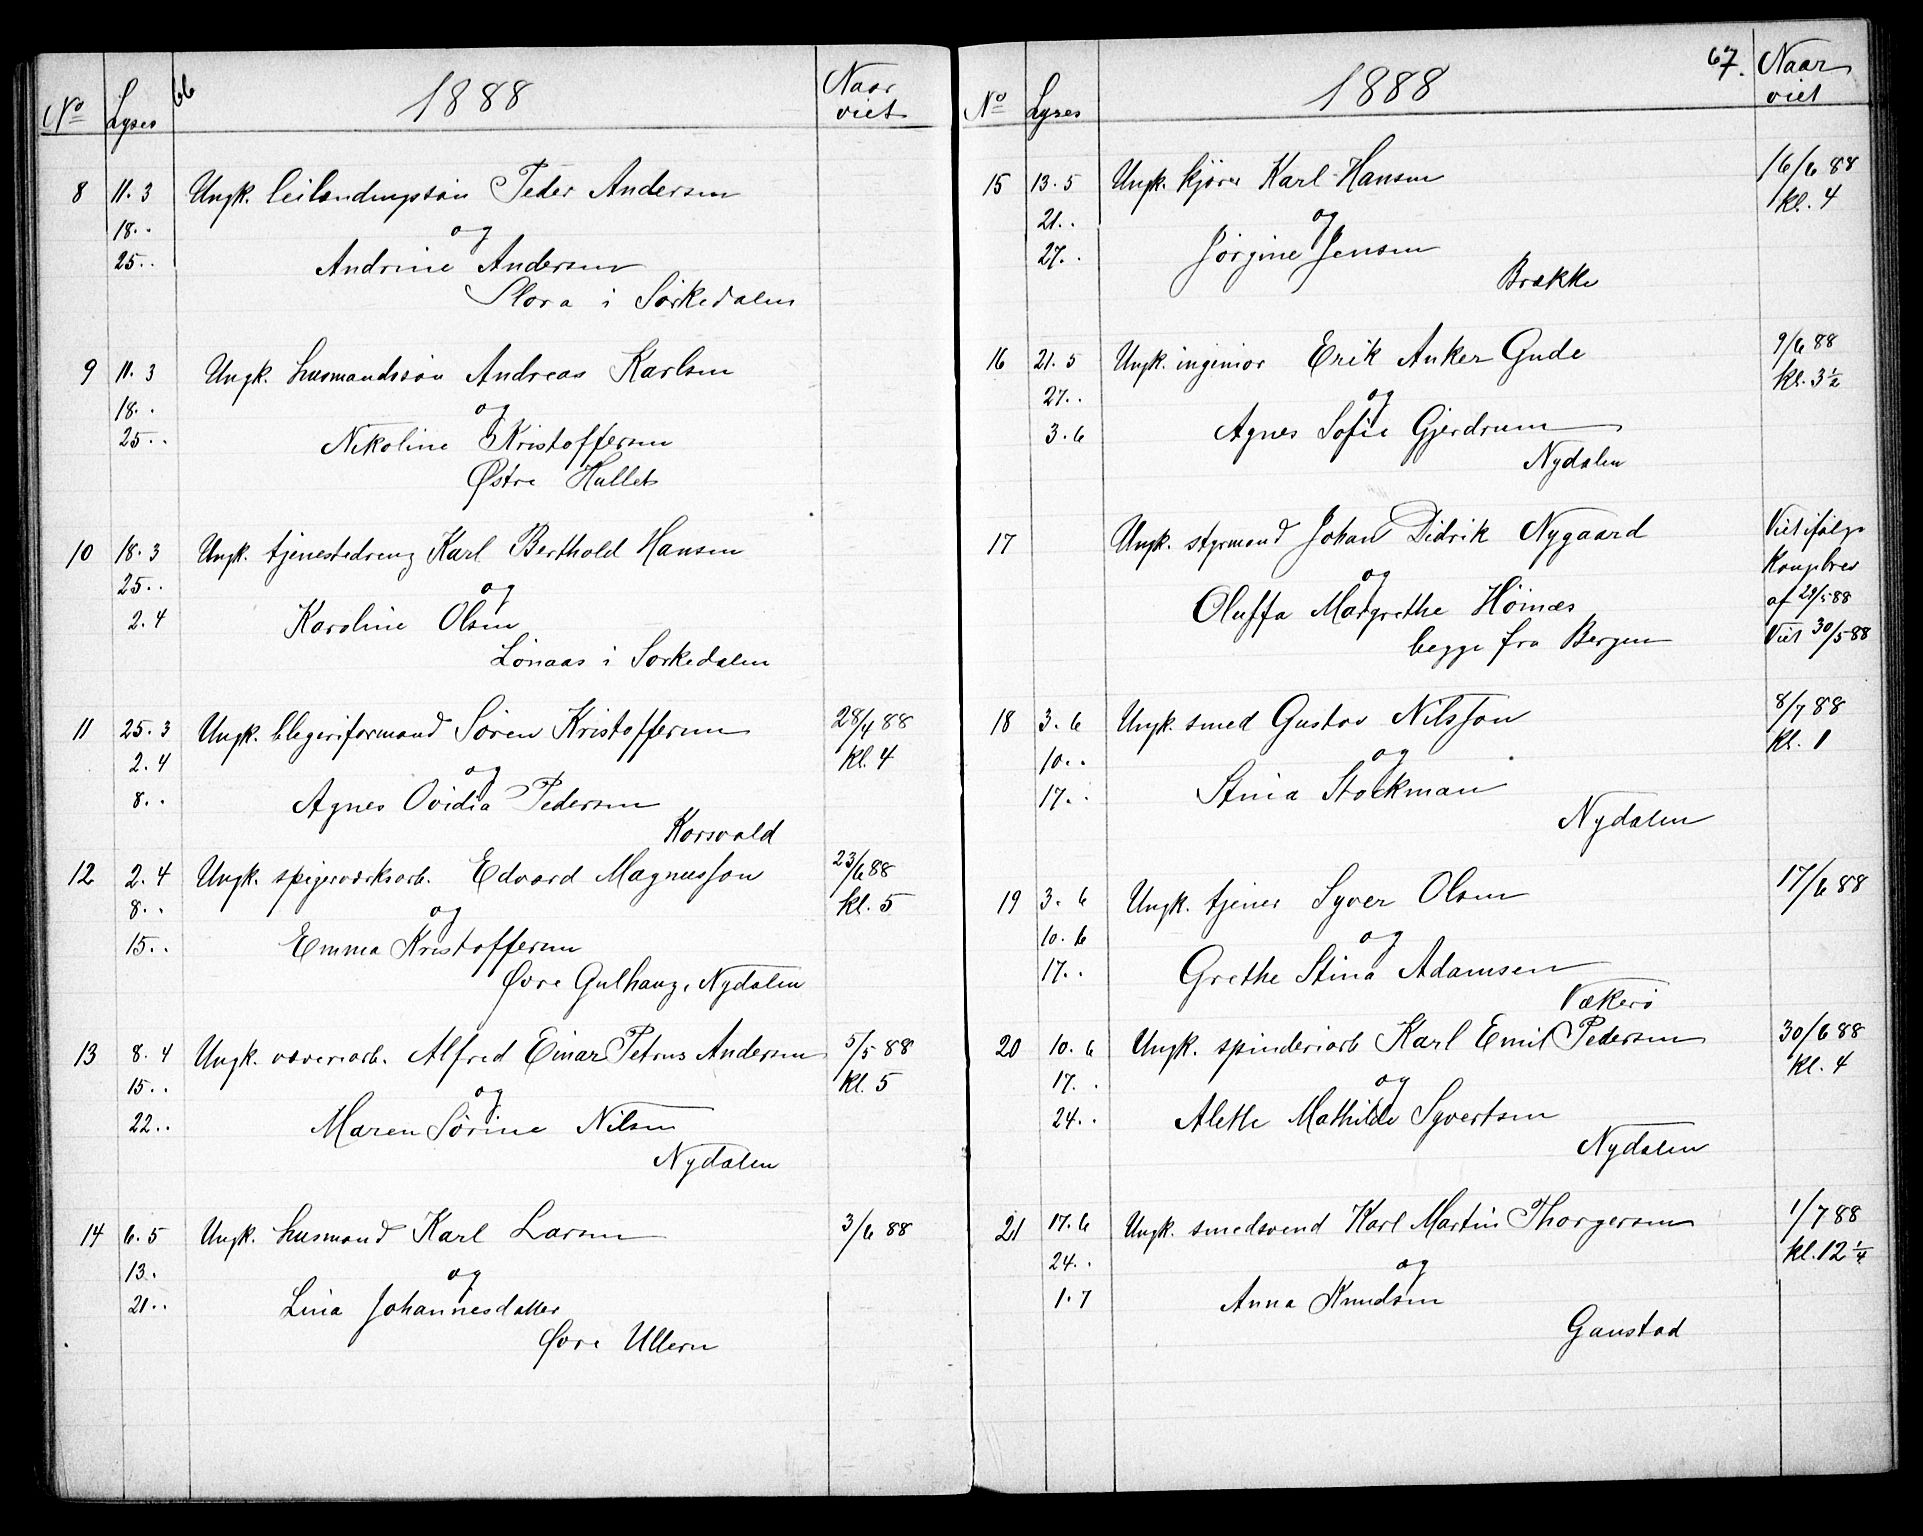 66
1888
Naar
No Lyses viet
8 11.3 Ungk. leilendingssøn Peder Andersen
18. . og
25. . Andrine Andersen
Slora i Sørkedalen
9 11.3 Ungk. husmandssøn Andreas Karlsen
18. . og
25. . Nikoline Kristoffersen
Østre Hullet
10 18.3 Ungk. tjenestedreng Karl Berthold Hansen
25. . og
2.4 Karoline Olsen
Lønaas i Sørkedalen
11 25.3 Ungk. blegeriformand Søren Kristoffersen 28/4 88
2.4 og kl. 4
8. . Agnes Ovidia Pedersen
Korsvold
12 2.4 Ungk. spigerværksarb. Edvard Magnusson 23/6 88
8. . og kl. 5
15. . Emma Kristoffersen
Øvre Gulhaug, Nydalen
13 8.4 Ungk. væveriarb. Alfred Einar Petrus Andersen 5/5 88
15. . og kl. 5
22. . Maren Sørine Nilsen
Nydalen
14 6.5 Ungk. husmand Karl Larsen 3/6 88
13. og
21. . Lina Johannesdatter
Øvre Ullern
67.
1888
Naar
No Lyses viet
15 13.5 Ungk. kjører Karl Hansen 16/6 88
21. . og kl. 4
27. . Jørgine Jensen
Brække
16 21.5 Ungk. ingeniør Erik Anker Gude 9/6 88
27. . og kl. 3 1/2
3.6 Agnes Sofie Gjerdrum
Nydalen
17 Ungk. styrmand Johan Didrik Nygaard Viet ifølge
og Kongebrev
Oluffa Margrethe Höinæs af 29/5 88
begge fra Bergen Viet 30/5 88
18 3.6 Ungk. smed Gustav Nilsson 8/7 88
10. . og kl. 1
17. . Stina Stockman
Nydalen
19 3.6 Ungk. tjener Syver Olsen 17/6 88
10.6 og
17. . Grethe Stina Adamsen
Vækerø
20 10.6 Ungk. spinderiarb Karl Emil Pedersen 30/6 88
17. . og kl. 4
24. . Alette Mathilde Syvertsen
Nydalen
21 17.6 Ungk. smedsvend Karl Martin Thorgersen 1/7 88
24. . og kl. 12 1/4
1.7 Anna Knudsen
Gaustad